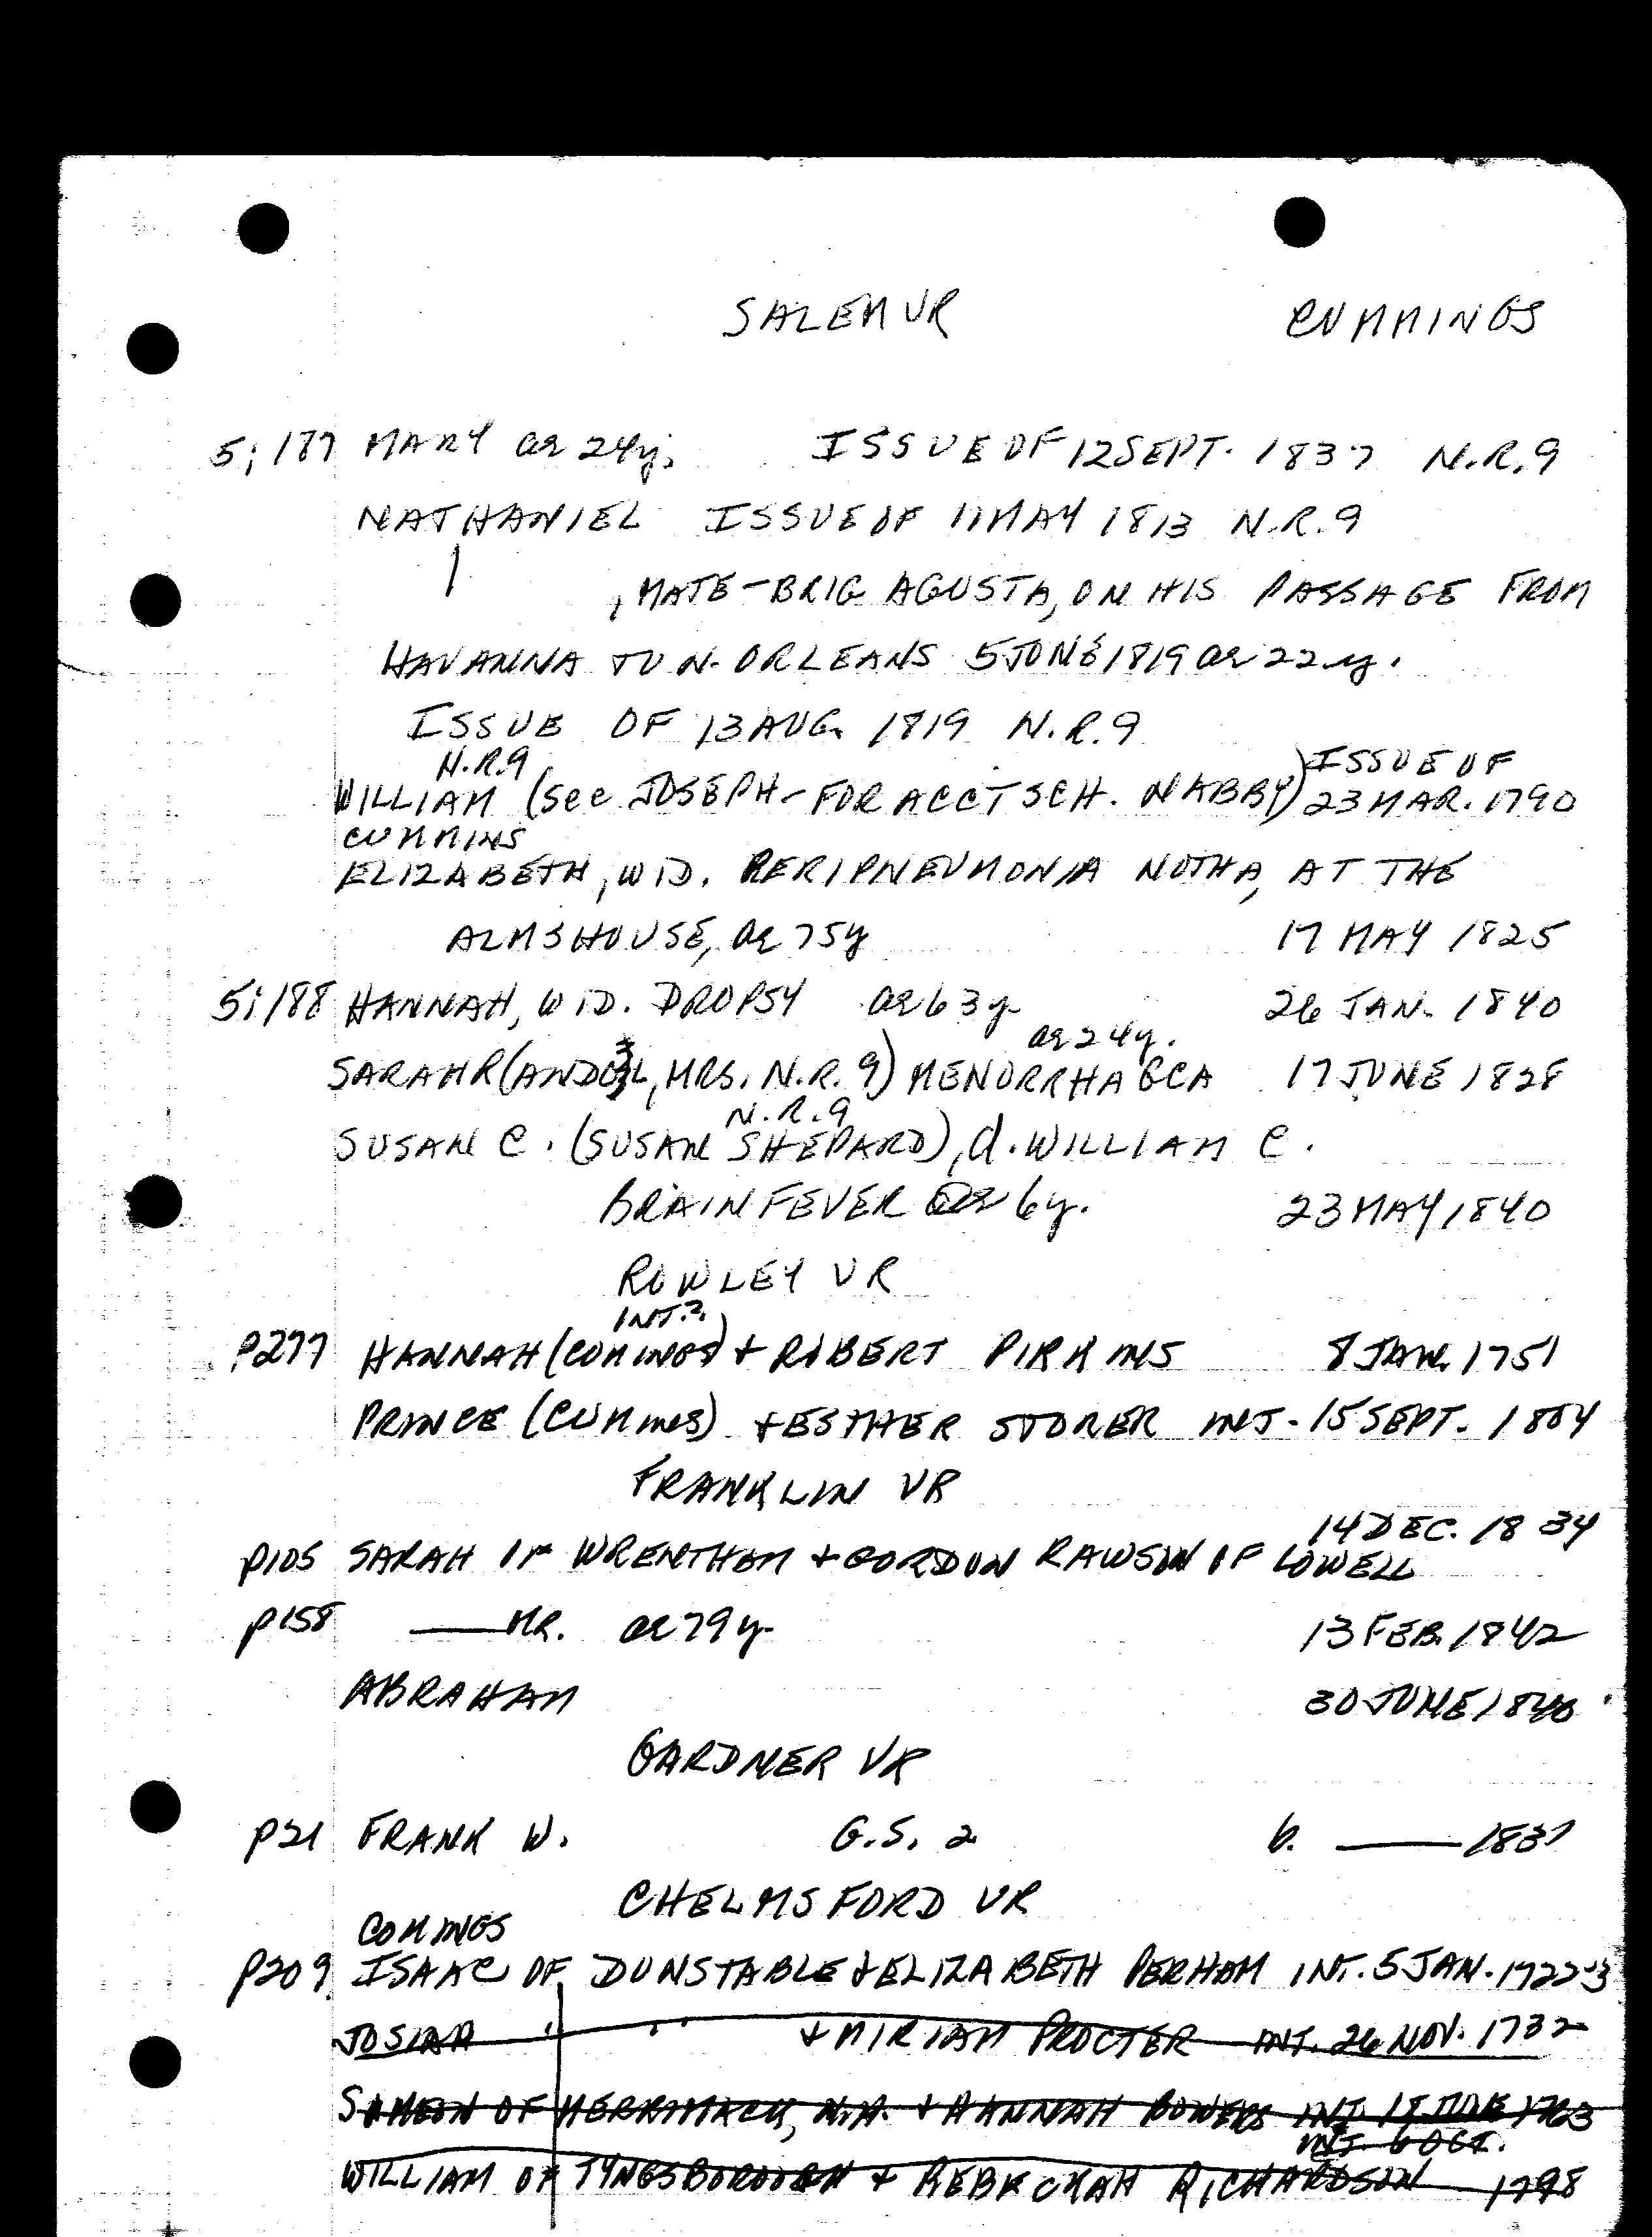 SALEM VR CUMMINGS
5;187 MARY ae 24y. ISSUE OF 12 SEPT. 1837 N.R.9
NATHANIEL ISSUE OF 11 MAY 1813 N.R.9
, MATE-BRIG AGUSTA, ON HIS PASSAGE FROM
HAVANNA TO N. ORLEANS 5 JUNE 1819 ae 22 y.
ISSUE OF 13 AUG. 1819 N.R.9
N.R.9 ISSUE OF
WILLIAM (see JOSEPH-FOR ACCT SCH. NABBY) 23 MAR. 1790
CUMMINS
ELIZABETH, WID. PERIPNEUMONIA NOTHA, AT THE
ALMSHOUSE, ae 75y 17 MAY 1825
5;188 HANNAH, WID. DROPSY ae 63y. 26 JAN. 1840
ae 24y.
SARAH R (, MRS. N.R. 9) MENORRHAGCA 17 JUNE 1828
N.R.9
SUSAN C. (SUSAN SHEPARD), d. WILLIAM C.
BRAIN FEVER ae 6y. 23 MAY 1840
ROWLEY VR
INT.?
P277 HANNAH (COMINGS) + ROBERT PIRKINS 8 JAN. 1751
PRINCE (CUMINGS) + ESTHER STORER INT. 15 SEPT. 1804
FRANKLIN VR
14 DEC. 1834
p105 SARAH OF WRENTHAM + GORDON RAWSON OF LOWELL
p158 —— MR. ae 79y. 13 FEB. 1842
ABRAHAM 30 JUNE
GARDNER VR
p21 FRANK W. G.S. 2 b. —— 1837
CHELMSFORD VR
COMINGS
P209 ISAAC OF DUNSTABLE + ELIZABETH PERHAM INT. 5 JAN. 1722-3
JOSIAH " " + MIRIAM PROCTER INT. 26 NOV. 1732
SIMEON OF MERRIMACK, N.H. + HANNAH BOWERS INT. JUNE 1763
INT. 6 OCT.
WILLIAM OF TYNGSBOROUGH + REBECKAH RICHARDSON 1798